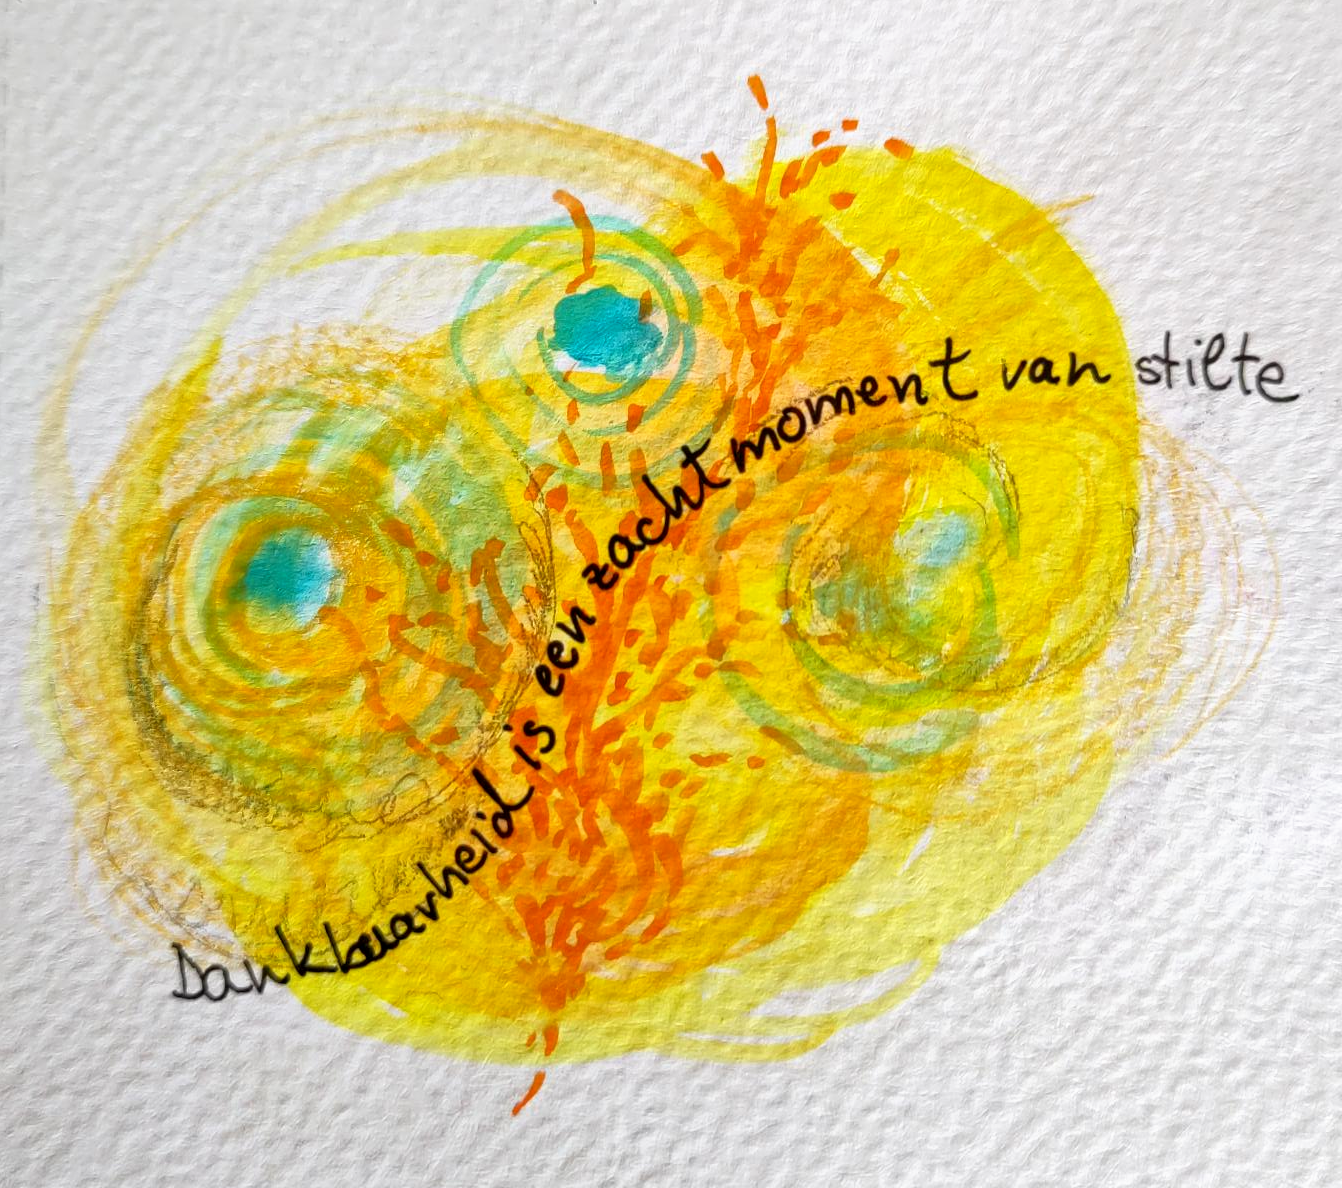 Dankbaarheid is een zacht moment van stilte